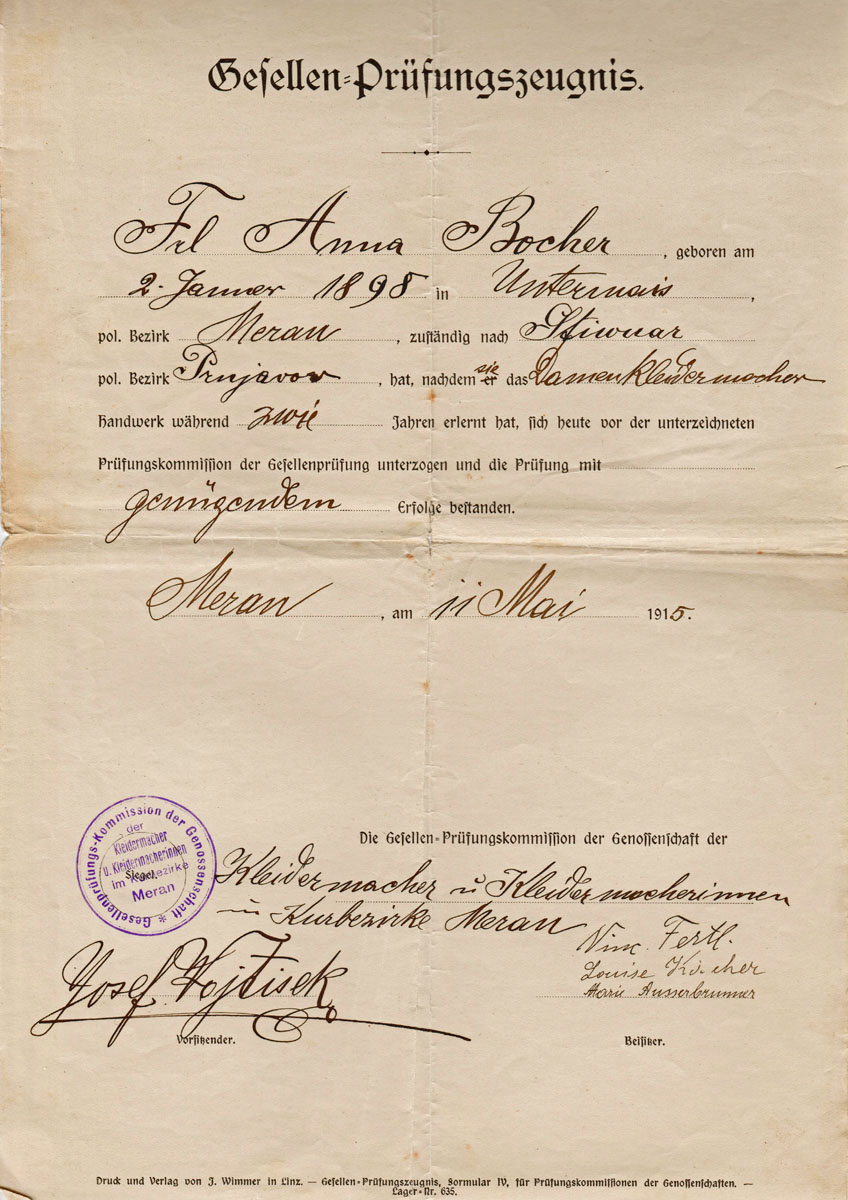 Gesellen-Prüfungszeugnis.
Frl Anna Bocher, geboren am
2. Janner 1898 in Untermais,
pol. Bezirk Meran, zuständig nach
pol. Bezirk Prnjavor, hat, nachdem er sie das Damenkleidermacher
Handwerk während zwei Jahren erlernt hat, sich heute vor der unterzeichneten
Prüfungskommission der Gesellenprüfung unterzogen und die Prüfung mit
genügendem Erfolge bestanden.
Meran, am 11 Mai 1915.
Die Gesellen-Prüfungskommission der Genossenschaft der
Kleidermacher u Kleidermacherinnen
im Kurbezirke Meran
Gesellenprüfungs-Kommission der Genossenschaft
der
Kleidermacher
u. Kleidermacherinnen
im Kurbezirke
Meran
Siegel.
Josef Wojtisek
Vinc. Fertl.
Louise Köcher
Marie Ausserbrunner
Vorsitzender.
Beisitzer.
Druck und Verlag von J. Wimmer in Linz. — Gesellen-Prüfungszeugnis, Formular IV, für Prüfungskommissionen der Genossenschaften. —
Lager-Nr. 635.